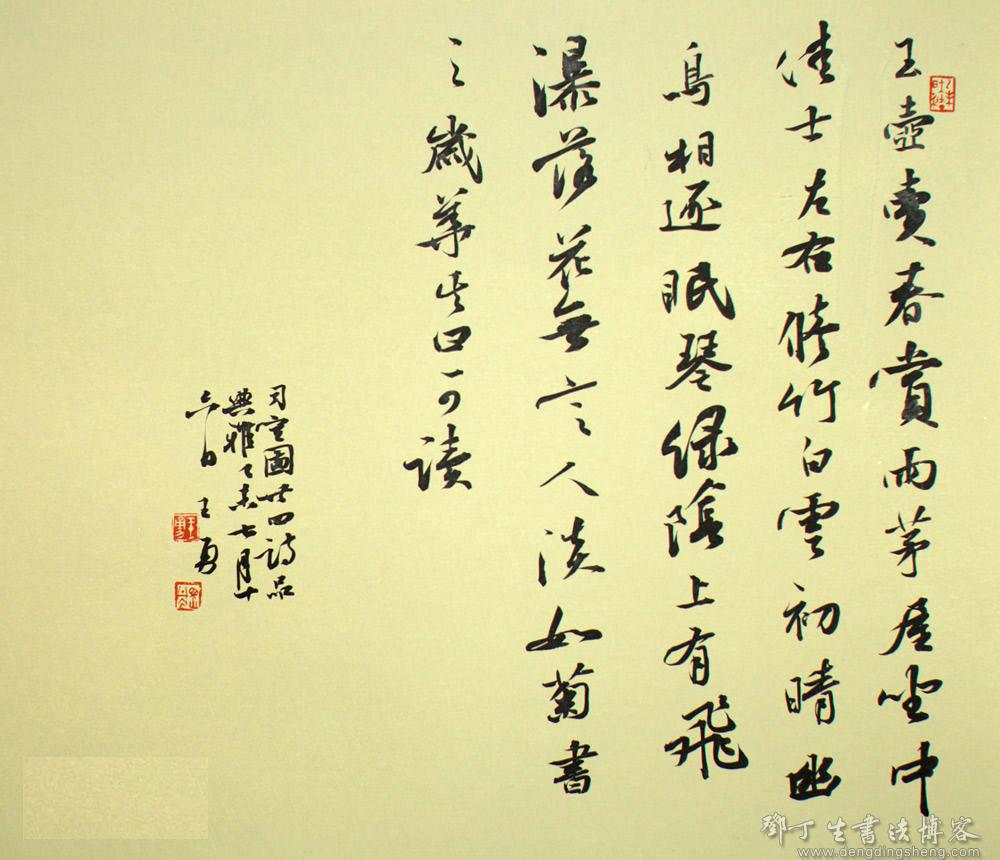 玉壺賣春賞雨茅屋坐中
佳士左右脩竹白雲初晴幽
鳥相逐眠琴綠陰上有飛
瀑落花無言人淡如菊書
之歲華其曰可讀
司空圖廿四詩品
典雅丁未七月十
六日王勇
王勇
鄧丁生書法博客
www.dengdingsheng.com